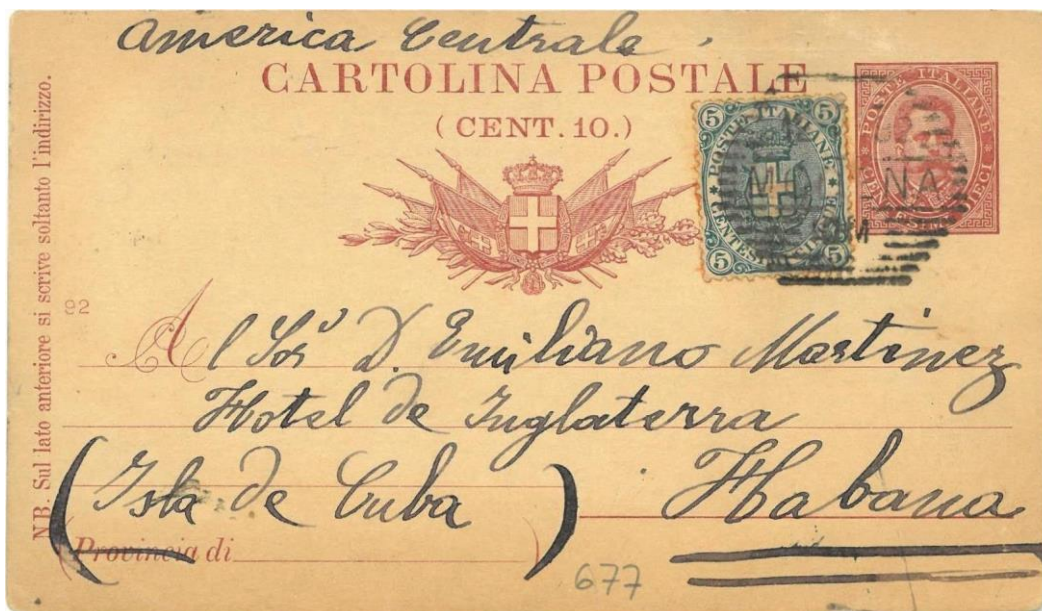 America Centrale
CARTOLINA POSTALE
(CENT. 10.)
5 5
POSTE ITALIANE
CENTESIMI CINQUE
5 5
POSTE ITALIANE
NA
NB. Sul lato anteriore si scrive soltanto l'indirizzo.
92
Al Sor D. Emiliano Martinez
Hotel de Inglaterra
(Isla de Cuba) Habana
Provincia di
677